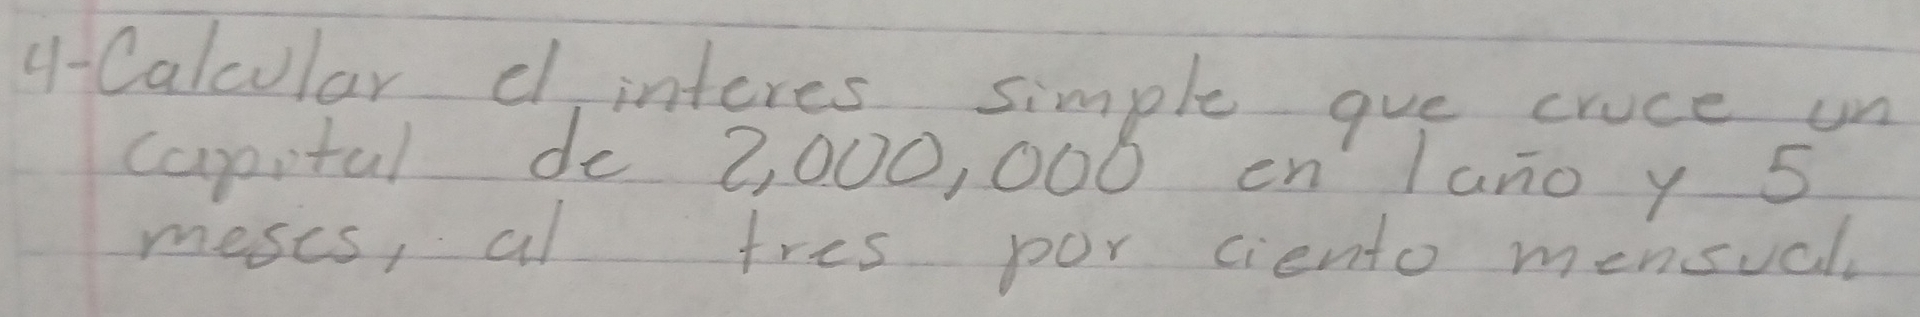 4-Calcular el interes simple que cruce un
capital de 2,000,000 en 1 año y 5
meses, al tres por ciento mensual.